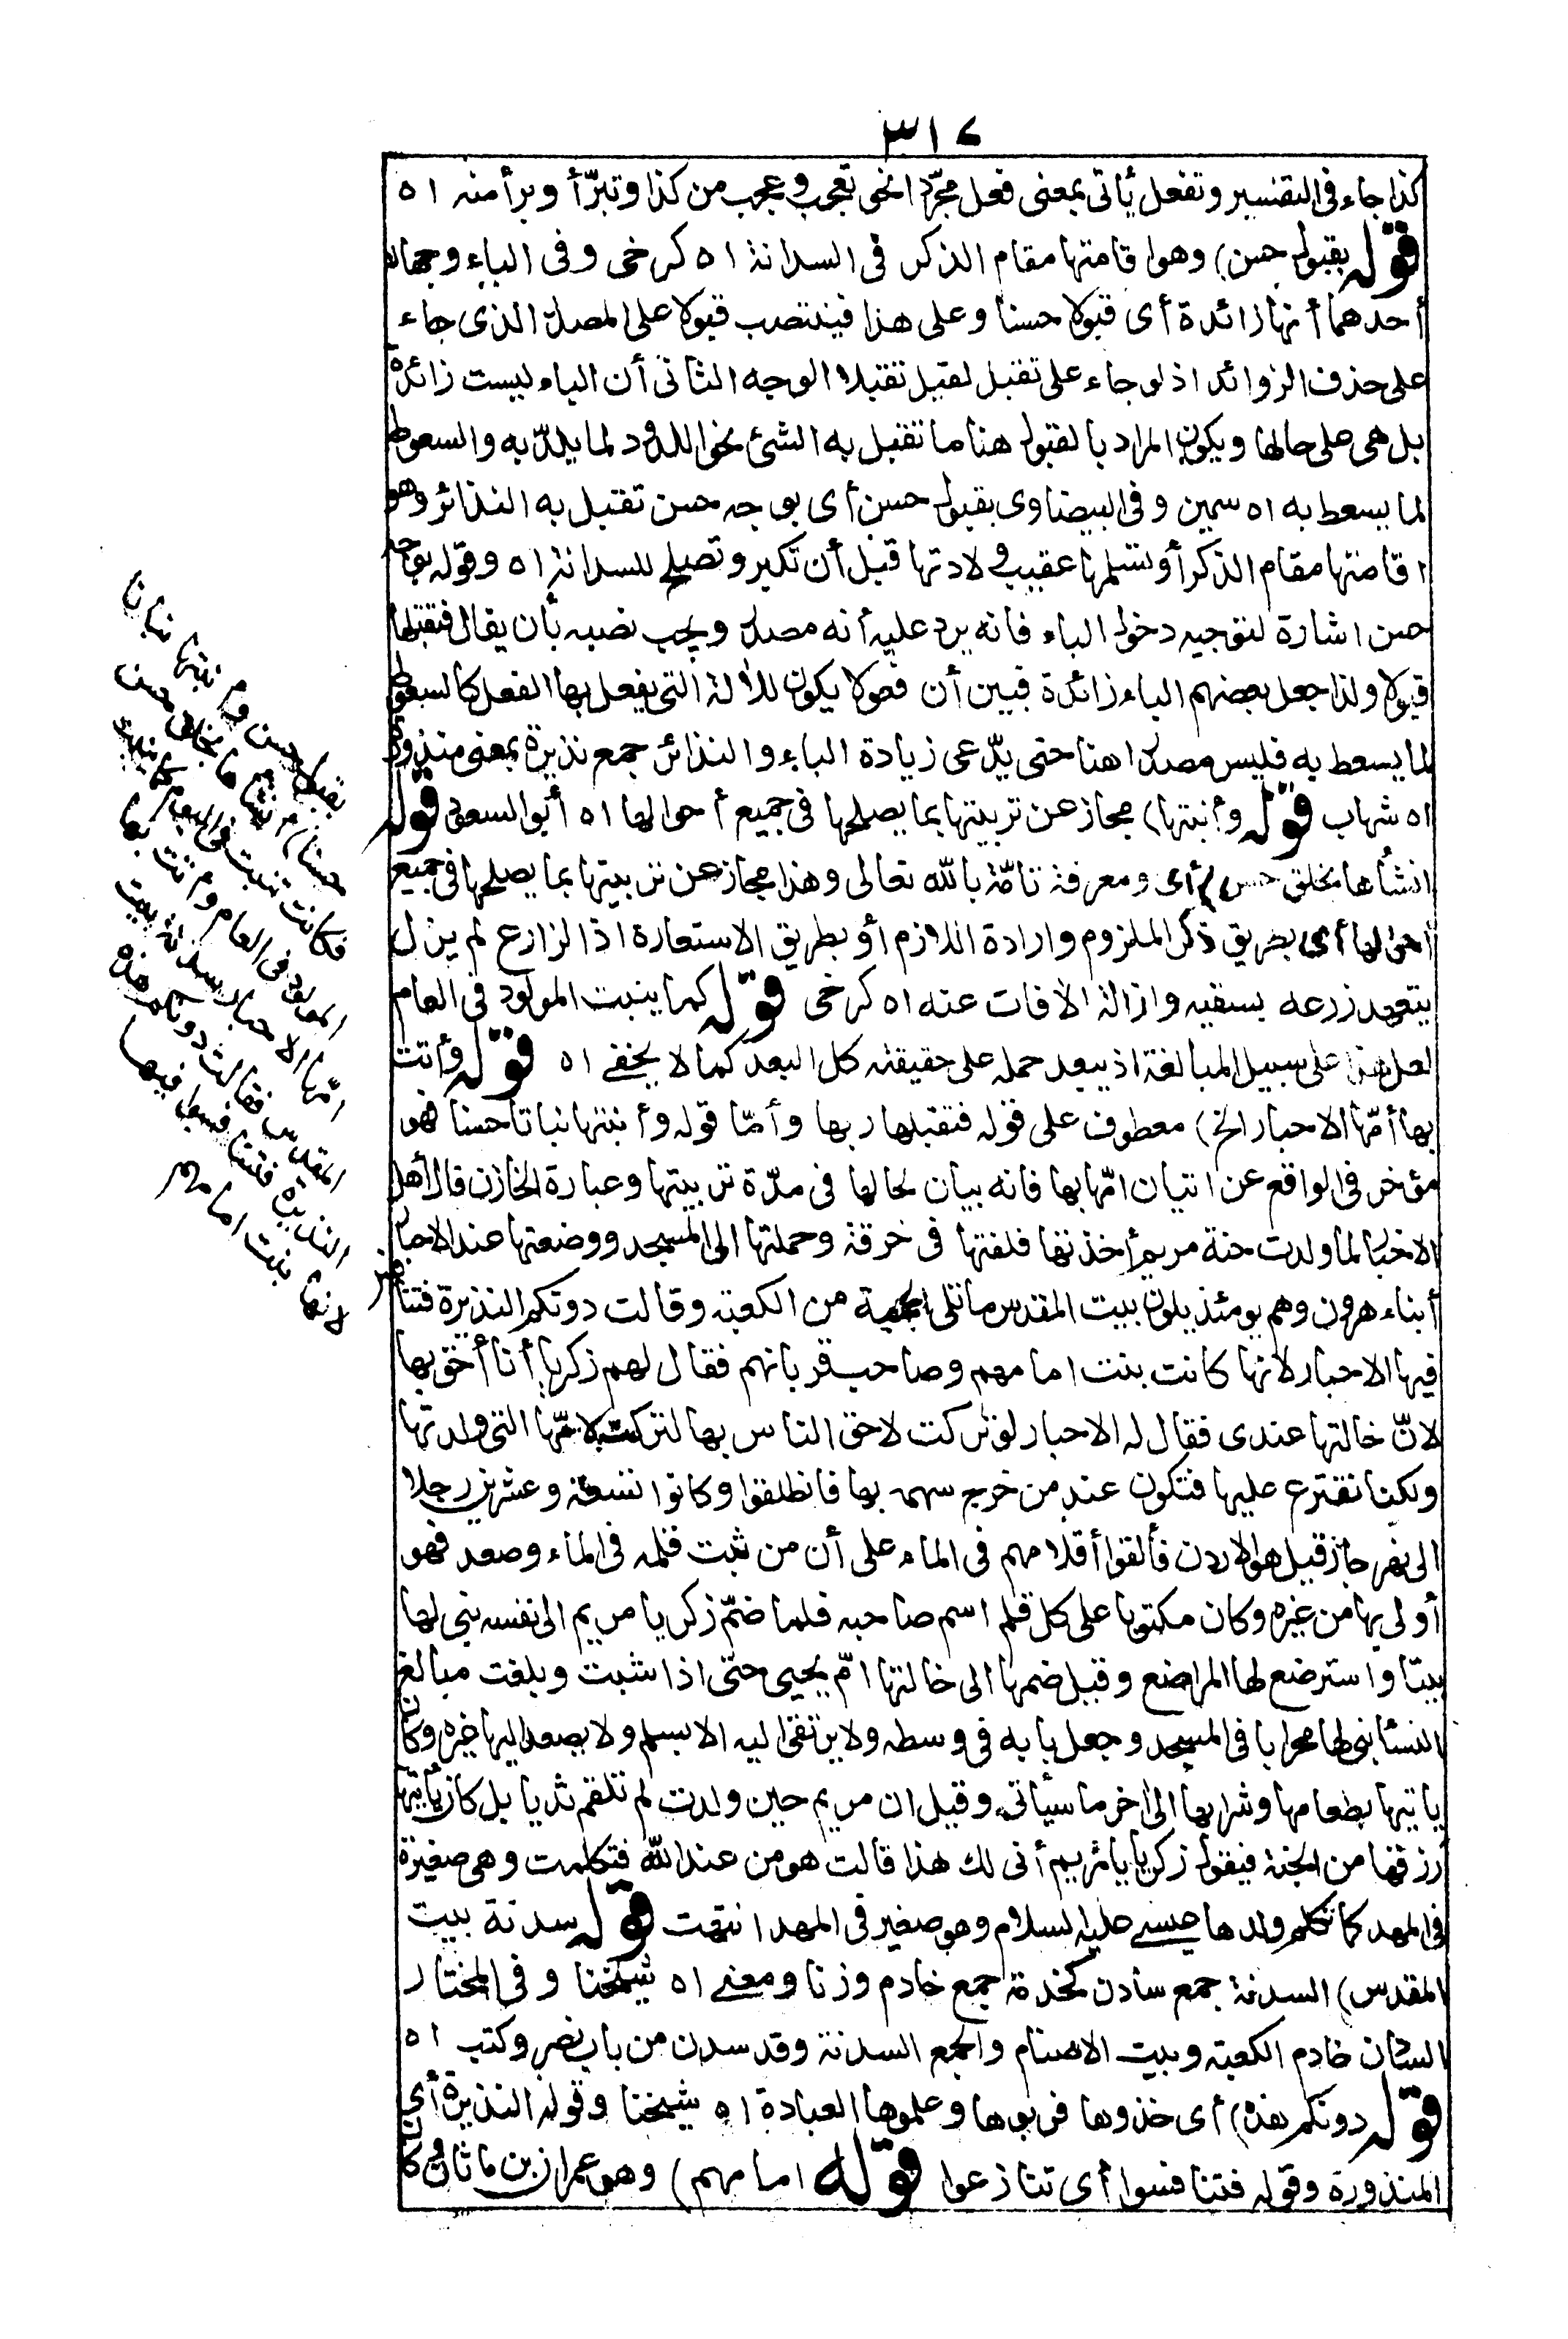 ٣١٧
كذا جاء فى التفسير وتفعل يأتى بمعنى فعل مجرّدا نحو تعجب وعجب من كذا وتبرّأ وبرأ منه اه
قوله بقبول حسن) وهو اقامتها مقام الذكر فى السدانة اه كرخى وفى الباء وجهان
أحدهما أنها زائدة أى قبولا حسنا وعلى هذا فينتصب قبولا على المصدر الذى جاء
على حذف الزوائد اذ لو جاء على تقبل لقيل تقبلا الوجه الثانى أن الباء ليست زائدة
بل هى على حالها ويكون المراد بالقبول هنا ما تقبل به الشئ نحو اللدود لما يلدّ به والسعوط
لما يسعط به اه سمين وفى البيضاوى بقبول حسن أى بوجه حسن تقبل به النذائر وهو
اقامتها مقام الذكر أو تسلمها عقيب ولادتها قبل أن تكبر وتصلح للسدانة اه وقوله بوجه
حسن اشارة لتوجيه دخول الباء فانه يرد عليه أنه مصدر ويجب نصبه بأن يقال فتقبلها
قبولا ولذا جعل بعضهم الباء زائدة فبين أن فعولا يكون للآلة التى يفعل بها الفعل كالسعوط
لما يسعط به فليس مصدرا هنا حتى يدّعى زيادة الباء والنذائر جمع نذيرة بمعنى منذورة
اه شهاب قوله وأنبتها) مجاز عن تربيتها بما يصلحها فى جميع أحوالها اه أبو السعود قوله
انشأها بخلق حسن) أى ومعرفة تامّة بالله تعالى وهذا مجاز عن تربيتها بما يصلحها فى جميع
أحوالها أى بطريق ذكر الملزوم وارادة اللازم أو بطريق الاستعارة اذ الزارع لم يزل
يتعهد زرعه بسقيه وازالة الآفات عنه اه كرخى قوله كما ينبت المولود فى العام
لعل هذا على سبيل المبالغة اذ يبعد حمله على حقيقته كل البعد كما لا يخفى اه قوله وأتت
بها أمّها الاحبار الخ) معطوف على قوله فتقبلها ربها وأمّا قوله وأنبتها نباتا حسنا فهو
مؤخر فى الواقع عن اتيان امّها بها فانه بيان لحالها فى مدّة تربيتها وعبارة الخازن قال أهل
الاخبار لما ولدت حنة مريم أخذتها فلفتها فى خرقة وحملتها الى المسجد ووضعتها عند الاحبار
أبناء هرون وهم يومئذ يلون بيت المقدس ما تلى الحجبة من الكعبة وقالت دونكم النذيرة فتنافس
فيها الاحبار لانها كانت بنت امامهم وصاحب قربانهم فقال لهم زكريا أنا أحق بها
لانّ خالتها عندى فقال له الاحبار لو تركت لاحق الناس بها لتركت لامّها التى ولدتها
ولكنا نقترع عليها فتكون عند من خرج سهمه بها فانطلقوا وكانوا تسعة وعشرين رجلا
الى نهر جار قيل هو الاردن فألقوا أقلامهم فى الماء على أن من ثبت قلمه فى الماء وصعد فهو
أولى بها من غيره وكان مكتوبا على كل قلم اسم صاحبه فلما ضمّ زكريا مريم الى نفسه بنى لها
بيتا واسترضع لها المراضع وقيل ضمها الى خالتها امّ يحيى حتى اذا شبت وبلغت مبالغ
النسا بنى لها محرابا فى المسجد وجعل بابه فى وسطه ولا يرتقى اليه الا بسلم ولا يصعد اليها غيره وكان
ياتيها بطعامها وشرابها الى اخر ما سيأتى وقيل ان مريم حين ولدت لم تلقم ثديا بل كان يأتيها
رزقها من الجنة فيقول زكريا يا مريم أنى لك هذا قالت هو من عند الله فتكلمت وهى صغيرة
فى المهد كما تكلم ولدها عيسى عليه السلام وهو صغير فى المهد انتهت قوله سدنة بيت
المقدس) السدنة جمع سادن كخدمة جمع خادم وزنا ومعنى اه شيخنا وفى المختار
السادن خادم الكعبة وبيت الاصنام والجمع السدنة وقد سدن من باب نصر وكتب اه
قوله دونكم هذه) أى خذوها فربوها وعلموها العبادة اه شيخنا وقوله النذيرة أى
المنذورة وقوله فتنافسوا أى تنازعوا قوله امامهم) وهو عمران بن ماثان وكان
بقبول حسن وانبتها نباتا
حسنا) انشأها بخلق حسن
فكانت تنبت فى اليوم كما ينبت
المولود فى العام وأتت بها
امّها الاحبار سدنة بيت
المقدس فقالت دونكم هذه
النذيرة فتنافسوا فيها
لانها بنت امامهم